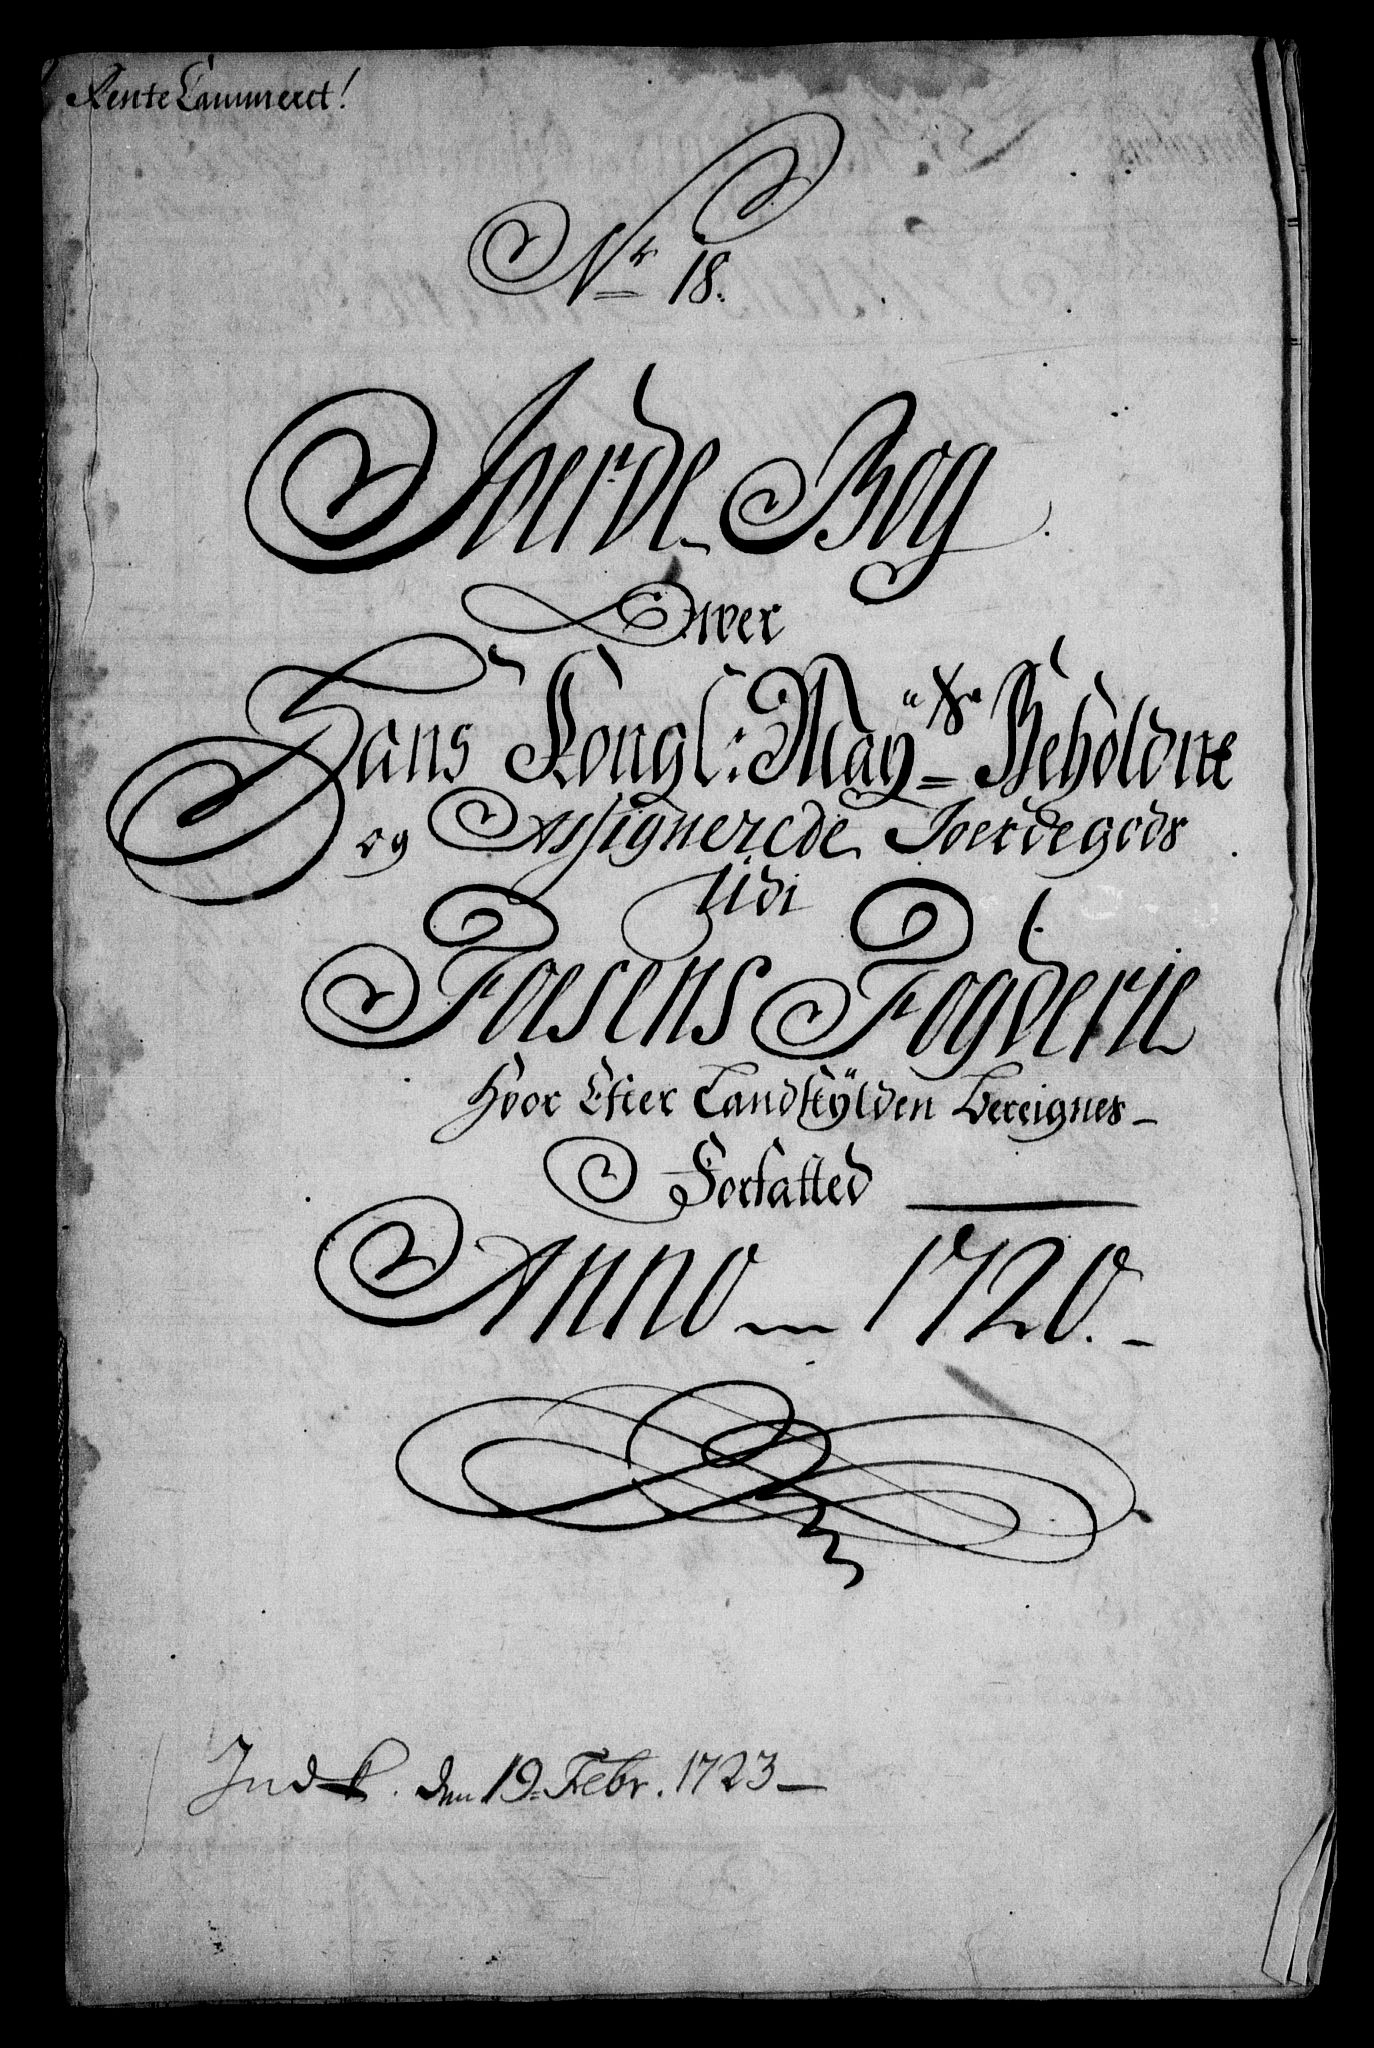 Rente Cammeret!
Nr 18.
Joerde Bog
Over
Hans Kongl: May ts Beholdne
og Assignerede Joerdegods
Udi
Foesens Fogderie
Hvor Efter Landskÿlden Bereignes
Forfatted
Anno 1720.
Ind k. den 19. Febr. 1723